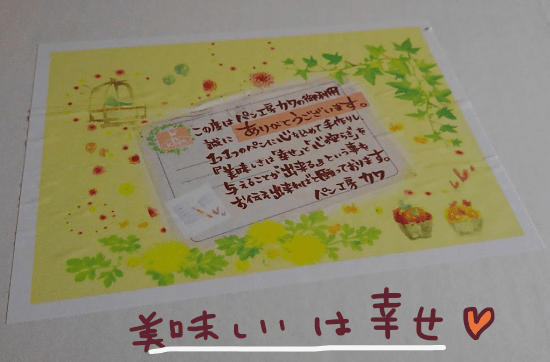 この度はパン工房カワの御利用
誠にありがとうございます。
1つ1つのパンに心を込めて手作りし、
『美味しさは「幸せ」と「心の安らぎ」を
与えることが出来る』という事も
お伝え出来ればと願っております。
パン工房カワ
美味しいは幸せ